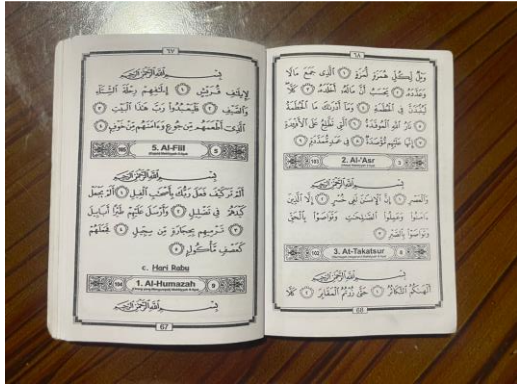 ٦٧
بِسْمِ اللهِ الرَّحْمٰنِ الرَّحِيْمِ
لِإِيلَٰفِ قُرَيْشٍ ١ إِۦلَٰفِهِمْ رِحْلَةَ الشِّتَآءِ
وَالصَّيْفِ ٢ فَلْيَعْبُدُوا۟ رَبَّ هَٰذَا الْبَيْتِ ٣
الَّذِىٓ أَطْعَمَهُم مِّن جُوعٍ وَءَامَنَهُم مِّنْ خَوْفٍۭ ٤
105 5. Al-Fiil 5
بِسْمِ اللهِ الرَّحْمٰنِ الرَّحِيْمِ
أَلَمْ تَرَ كَيْفَ فَعَلَ رَبُّكَ بِأَصْحَٰبِ الْفِيلِ ١ أَلَمْ يَجْعَلْ
كَيْدَهُمْ فِى تَضْلِيلٍ ٢ وَأَرْسَلَ عَلَيْهِمْ طَيْرًا أَبَابِيلَ
٣ تَرْمِيهِم بِحِجَارَةٍ مِّن سِجِّيلٍ ٤ فَجَعَلَهُمْ
كَعَصْفٍ مَّأْكُولٍۭ ٥
c. Hari Rabu
104 1. Al-Humazah 9
بِسْمِ اللهِ الرَّحْمٰنِ الرَّحِيْمِ
67
٦٨
وَيْلٌ لِّكُلِّ هُمَزَةٍ لُّمَزَةٍ ١ الَّذِى جَمَعَ مَالًا
وَعَدَّدَهُۥ ٢ يَحْسَبُ أَنَّ مَالَهُۥٓ أَخْلَدَهُۥ ٣ كَلَّا
لَيُنۢبَذَنَّ فِى الْحُطَمَةِ ٤ وَمَآ أَدْرَىٰكَ مَا الْحُطَمَةُ
٥ نَارُ اللَّهِ الْمُوقَدَةُ ٦ الَّتِى تَطَّلِعُ عَلَى الْأَفْـِٔدَةِ
٧ إِنَّهَا عَلَيْهِم مُّؤْصَدَةٌ ٨ فِى عَمَدٍ مُّمَدَّدَةٍۭ ٩
103 2. Al-'Asr 3
بِسْمِ اللهِ الرَّحْمٰنِ الرَّحِيْمِ
وَالْعَصْرِ ١ إِنَّ الْإِنسَٰنَ لَفِى خُسْرٍ ٢ إِلَّا الَّذِينَ
ءَامَنُوا۟ وَعَمِلُوا۟ الصَّٰلِحَٰتِ وَتَوَاصَوْا۟ بِالْحَقِّ
وَتَوَاصَوْا۟ بِالصَّبْرِ ٣
102 3. At-Takatsur 8
بِسْمِ اللهِ الرَّحْمٰنِ الرَّحِيْمِ
أَلْهَىٰكُمُ التَّكَاثُرُ ١ حَتَّىٰ زُرْتُمُ الْمَقَابِرَ ٢ كَلَّا
68